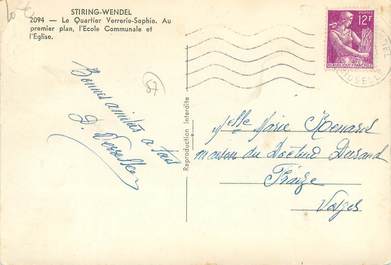 STIRING-WENDEL
2094 - Le Quartier Verrerie-Sophie. Au
premier plan, l'Ecole Communale et
l'Eglise.
12F
Bonnes amitiés à tous
57
Reproduction Interdite
Melle Marie Renard
maison du Docteur Durand
Fraize
Vosges